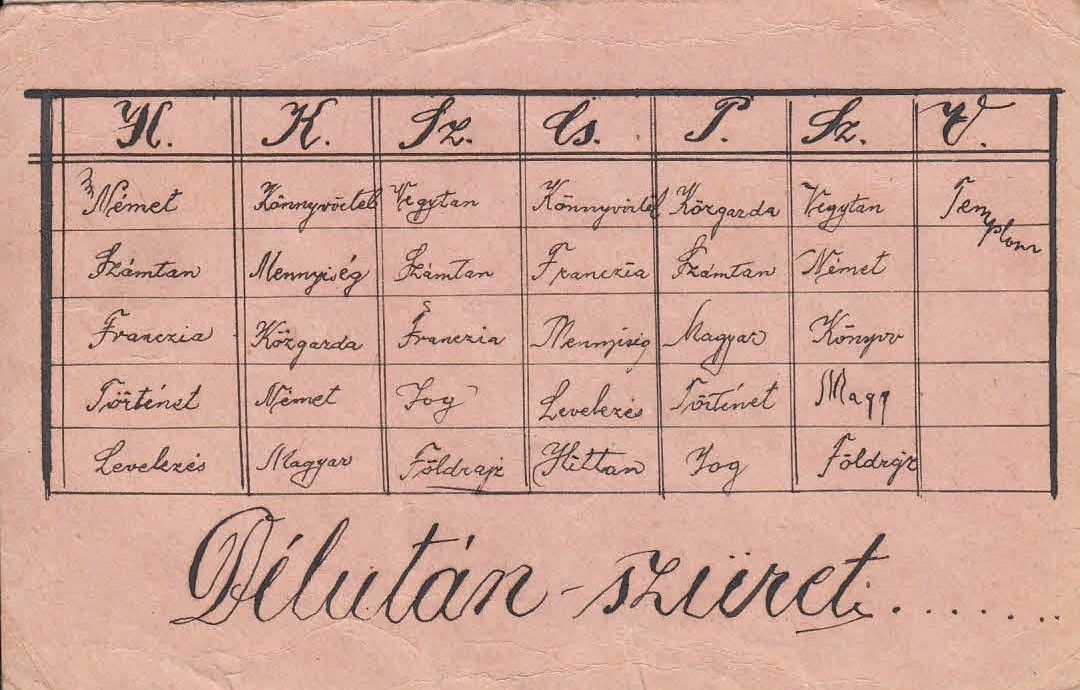 H. K. Sz. Cs. P. Sz. V.
Német Könnyvvitel Vegytan Könnyvvitel Közgazda Vegytan Templom
Számtan Mennyiség Számtan Franczia Számtan Német
Franczia Közgazda Franczia Mennyiség Magyar Könyvv
Történet Német Jog Levelezés Történet Magy
Levelezés Magyar Földrajz Hittan Jog Földrajz
Délután - szüret.......